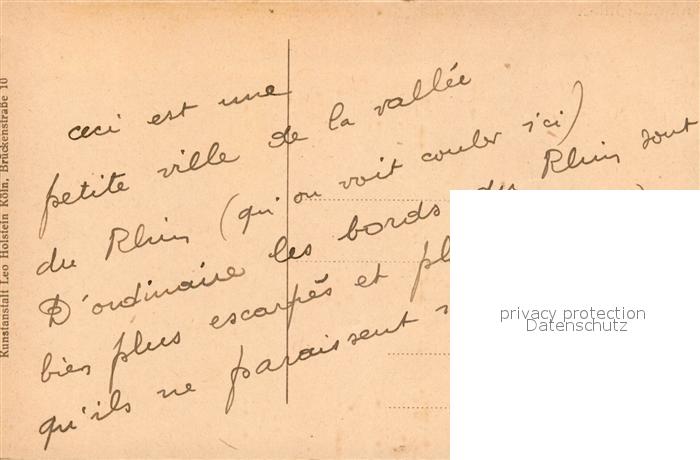 ceci est une
petite ville de la vallée
du Rhin (qu'on voit couler ici)
D'ordinaire les bords du Rhin sont
bien plus escarpés et
qu'ils ne paraissent
Kunstanstalt Leo Holstein Köln, Brückenstraße 10
privacy protection
Datenschutz